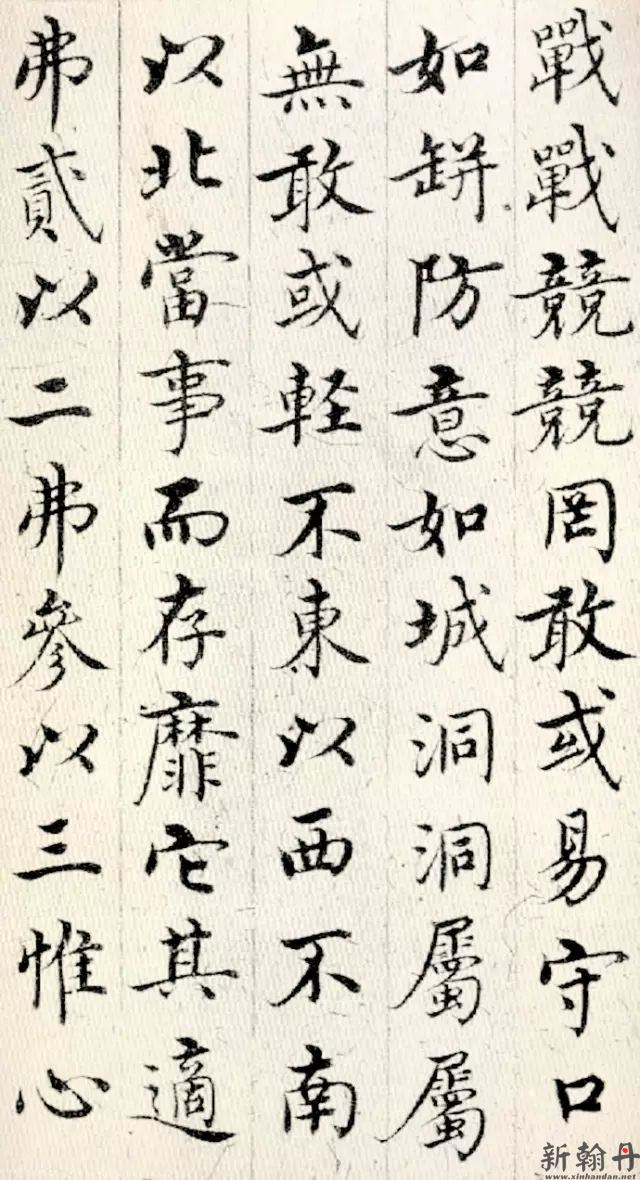 戰戰競競罔敢或易守口
如缾防意如城洞洞屬屬
無敢或軽不東以西不南
以北當事而存靡它其適
弗貳以二弗參以三惟心
新翰丹
www.xinhandan.net